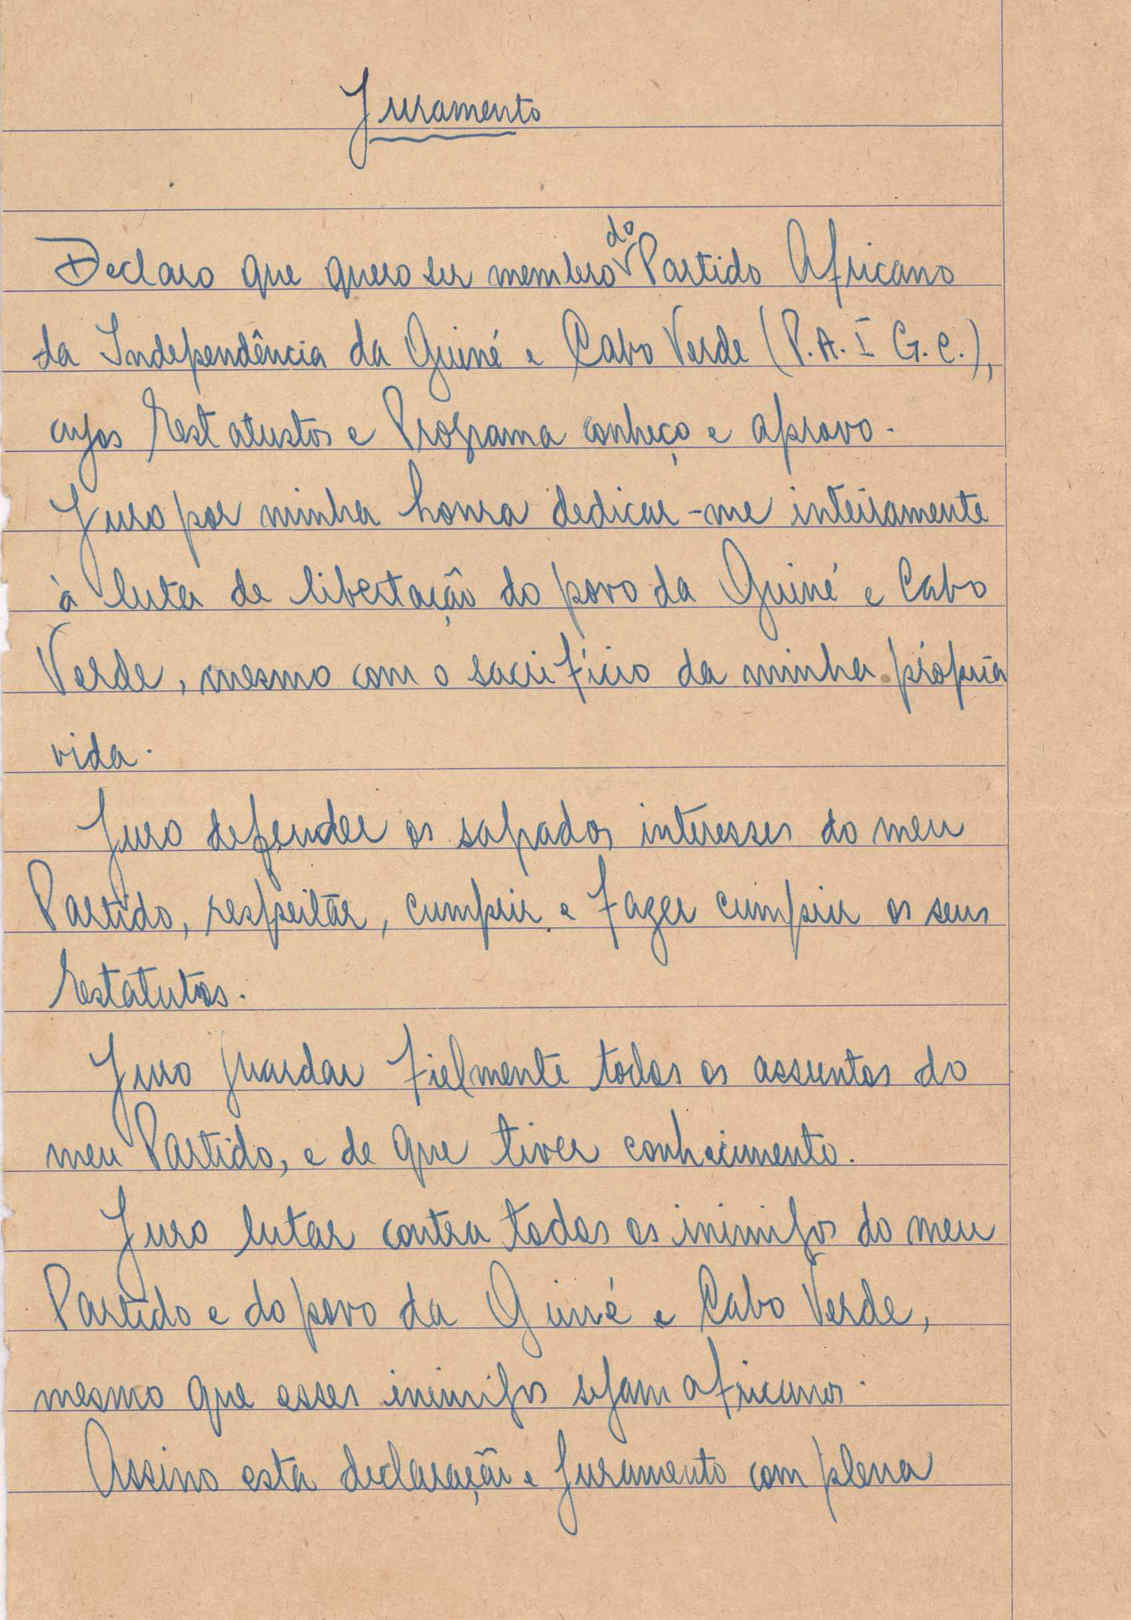 Juramento
Declaro que quero ser membro do Partido Africano
da Independência da Guiné e Cabo Verde (P.A.I G.C.),
cujos Estatustos e Programa conheço e aprovo.
Juro por minha honra dedicar-me inteiramente
à luta de libertação do povo da Guiné e Cabo
Verde, mesmo com o sacrifício da minha própria
vida.
Juro defender os sagrados interesses do meu
Partido, respeitar, cumprir e fazer cumprir os seus
Estatutos.
Juro guardar fielmente todos os assuntos do
meu Partido, e de que tiver conhecimento.
Juro lutar contra todos os inimigos do meu
Partido e do povo da Guiné e Cabo Verde,
mesmo que esses inimigos sejam africanos.
Assino esta declaração e juramento com plena